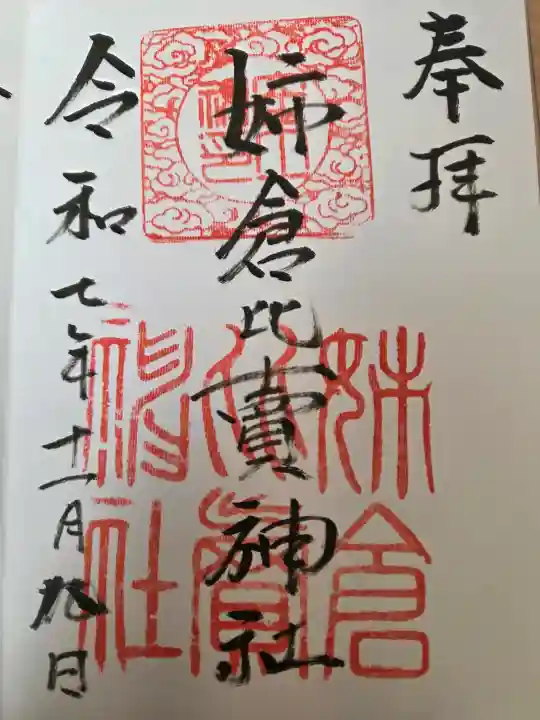 奉拝
姉倉比賣神社
令和七年十一月九日
姉倉
比賣
神社